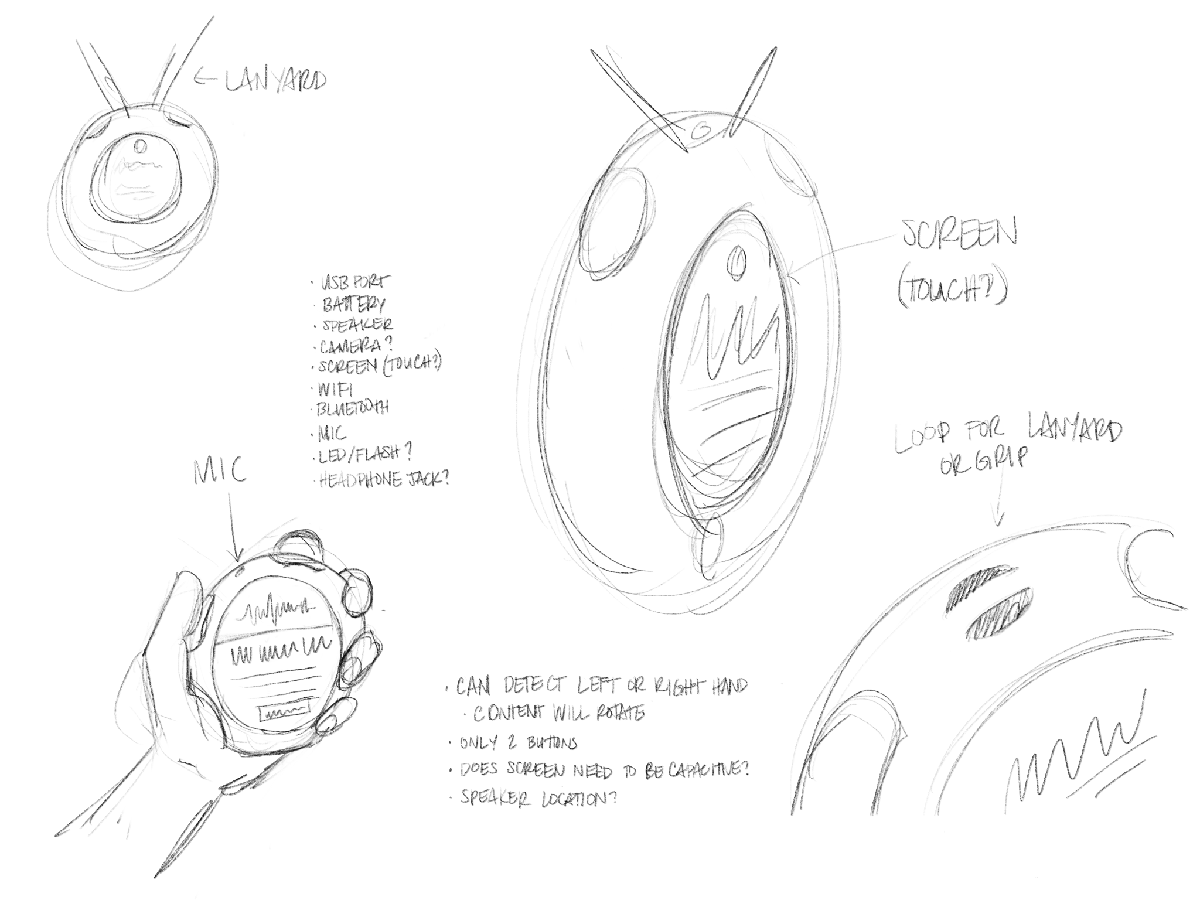 ← LANYARD
SCREEN
(TOUCH?)
· USB PORT
· BATTERY
· SPEAKER
· CAMERA?
· SCREEN (TOUCH?)
· WIFI
· BLUETOOTH
· MIC
· LED/FLASH?
· HEADPHONE JACK?
LOOP FOR LANYARD
OR GRIP
MIC
· CAN DETECT LEFT OR RIGHT HAND
· CONTENT WILL ROTATE
· ONLY 2 BUTTONS
· DOES SCREEN NEED TO BE CAPACITIVE?
· SPEAKER LOCATION?